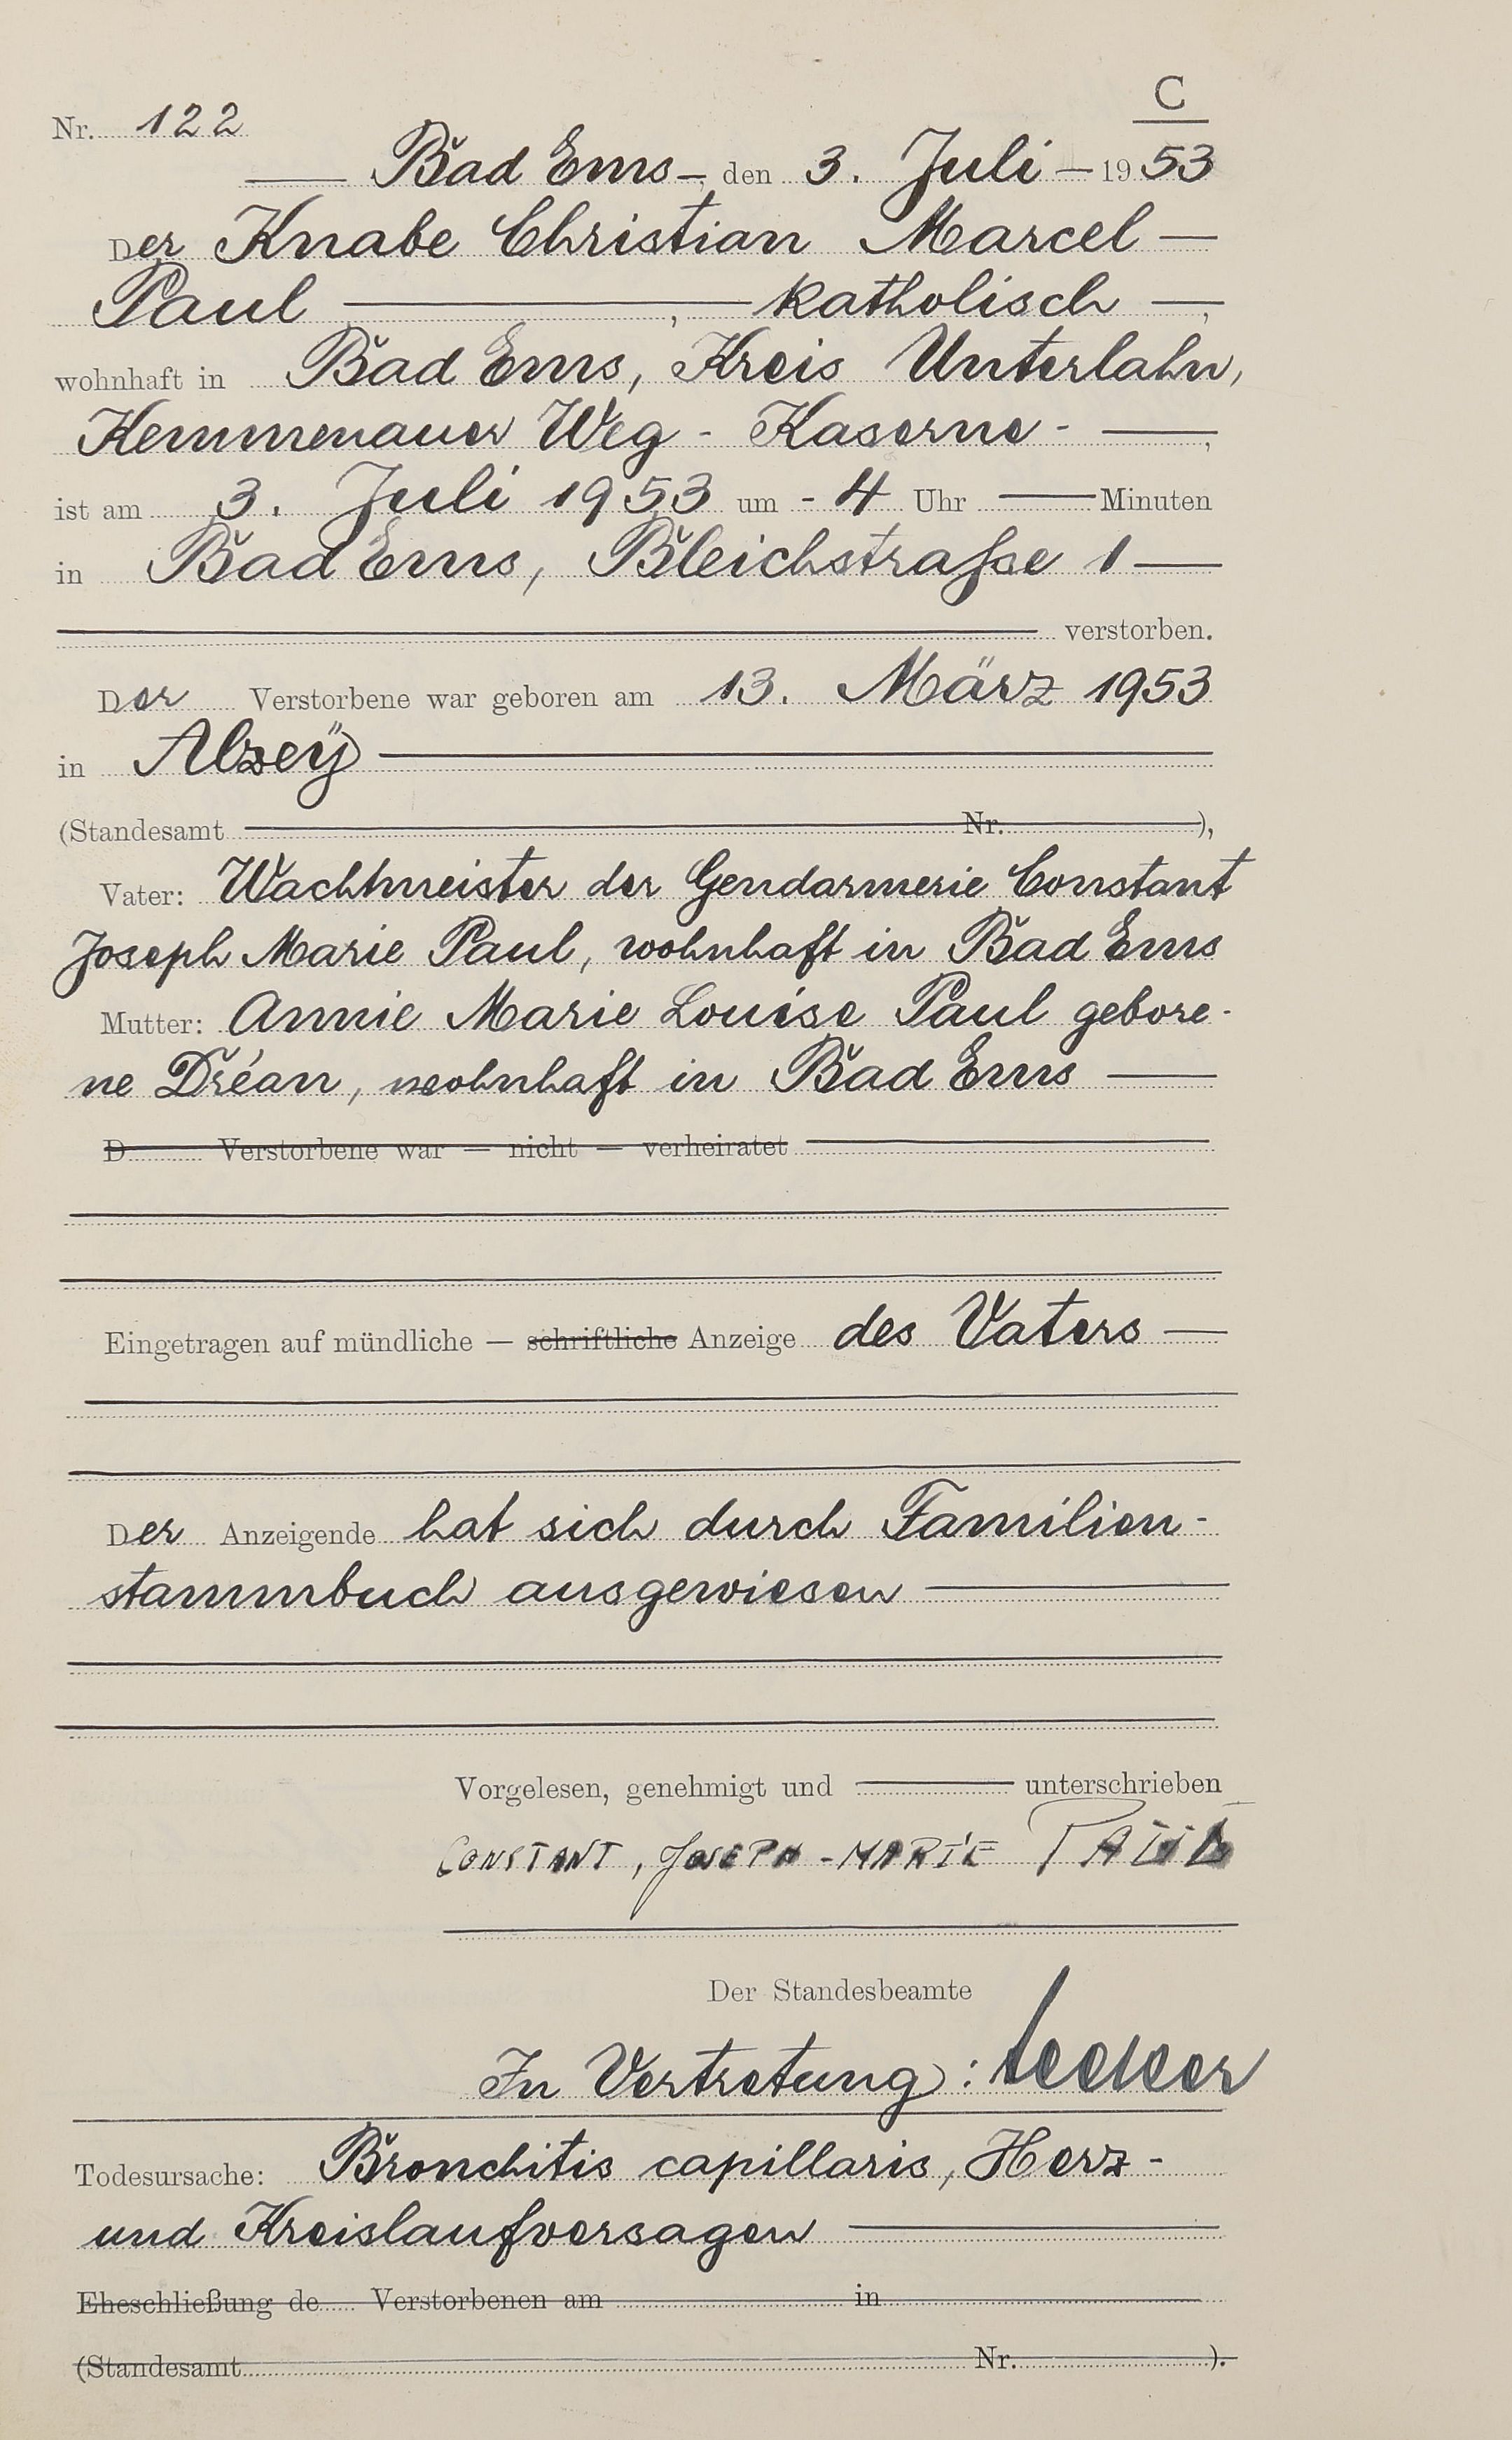 C
Nr. 122
— Bad Ems —, den 3. Juli — 1953
Der Knabe Christian Marcel —
Paul —, katholisch —,
wohnhaft in Bad Ems, Kreis Unterlahn,
Kemmenauer Weg - Kaserne - —,
ist am 3. Juli 1953 um - 4 Uhr — Minuten
in Bad Ems, Bleichstraße 1 —
— verstorben.
Der Verstorbene war geboren am 13. März 1953
in Alzey —
(Standesamt — Nr. —),
Vater: Wachtmeister der Gendarmerie Constant
Joseph Marie Paul, wohnhaft in Bad Ems
Mutter: Annie Marie Louise Paul gebore-
ne Dréan, wohnhaft in Bad Ems —
D Verstorbene war — nicht — verheiratet —
Eingetragen auf mündliche — schriftliche Anzeige des Vaters —
Der Anzeigende hat sich durch Familien-
stammbuch ausgewiesen —
Vorgelesen, genehmigt und — unterschrieben
CONSTANT, JOSEPH-MARIE PAUL
Der Standesbeamte
In Vertretung:
Todesursache: Bronchitis capillaris, Herz-
und Kreislaufversagen —
Eheschließung de Verstorbenen am in
(Standesamt Nr. ).